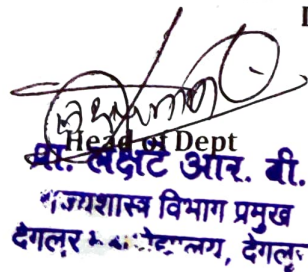 Head of Dept
प्रा. लक्षटे आर. बी.
राज्यशास्त्र विभाग प्रमुख
देगलूर देगलूर